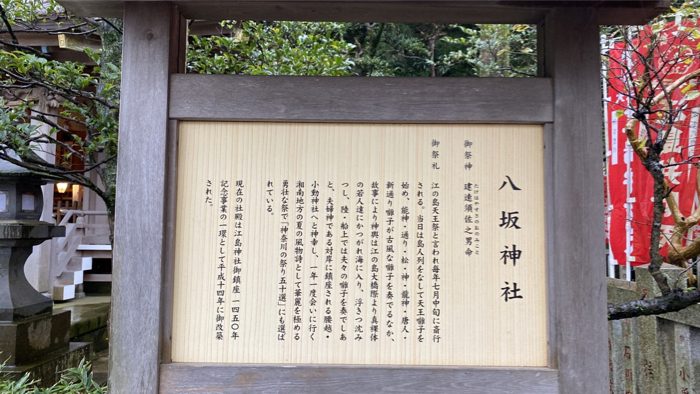 八坂神社
御祭神　建速須佐之男命
たけはやすさのおのみこと
御祭礼　江の島天王祭と言われ毎年七月中旬に斎行
される。当日は島人列をなして天王囃子を
始め、龍神・通り・松・神・龍神・唐人・
新通り囃子が古風な囃子を奏でるなか、
故事により神輿は江の島大橋際より真裸体
の若人達にかつがれ海に入り、浮きつ沈み
つし、陸・船上では夫々の囃子を奏でしあ
と、夫婦神である対岸に鎮座される腰越・
小動神社へと神幸し、一年一度会いに行く
湘南地方の夏の風物詩として華麗を極める
勇壮な祭で「神奈川の祭り五十選」にも選ば
れている。
現在の社殿は江島神社御鎮座一四五〇年
記念事業の一環として平成十四年に御改築
された。